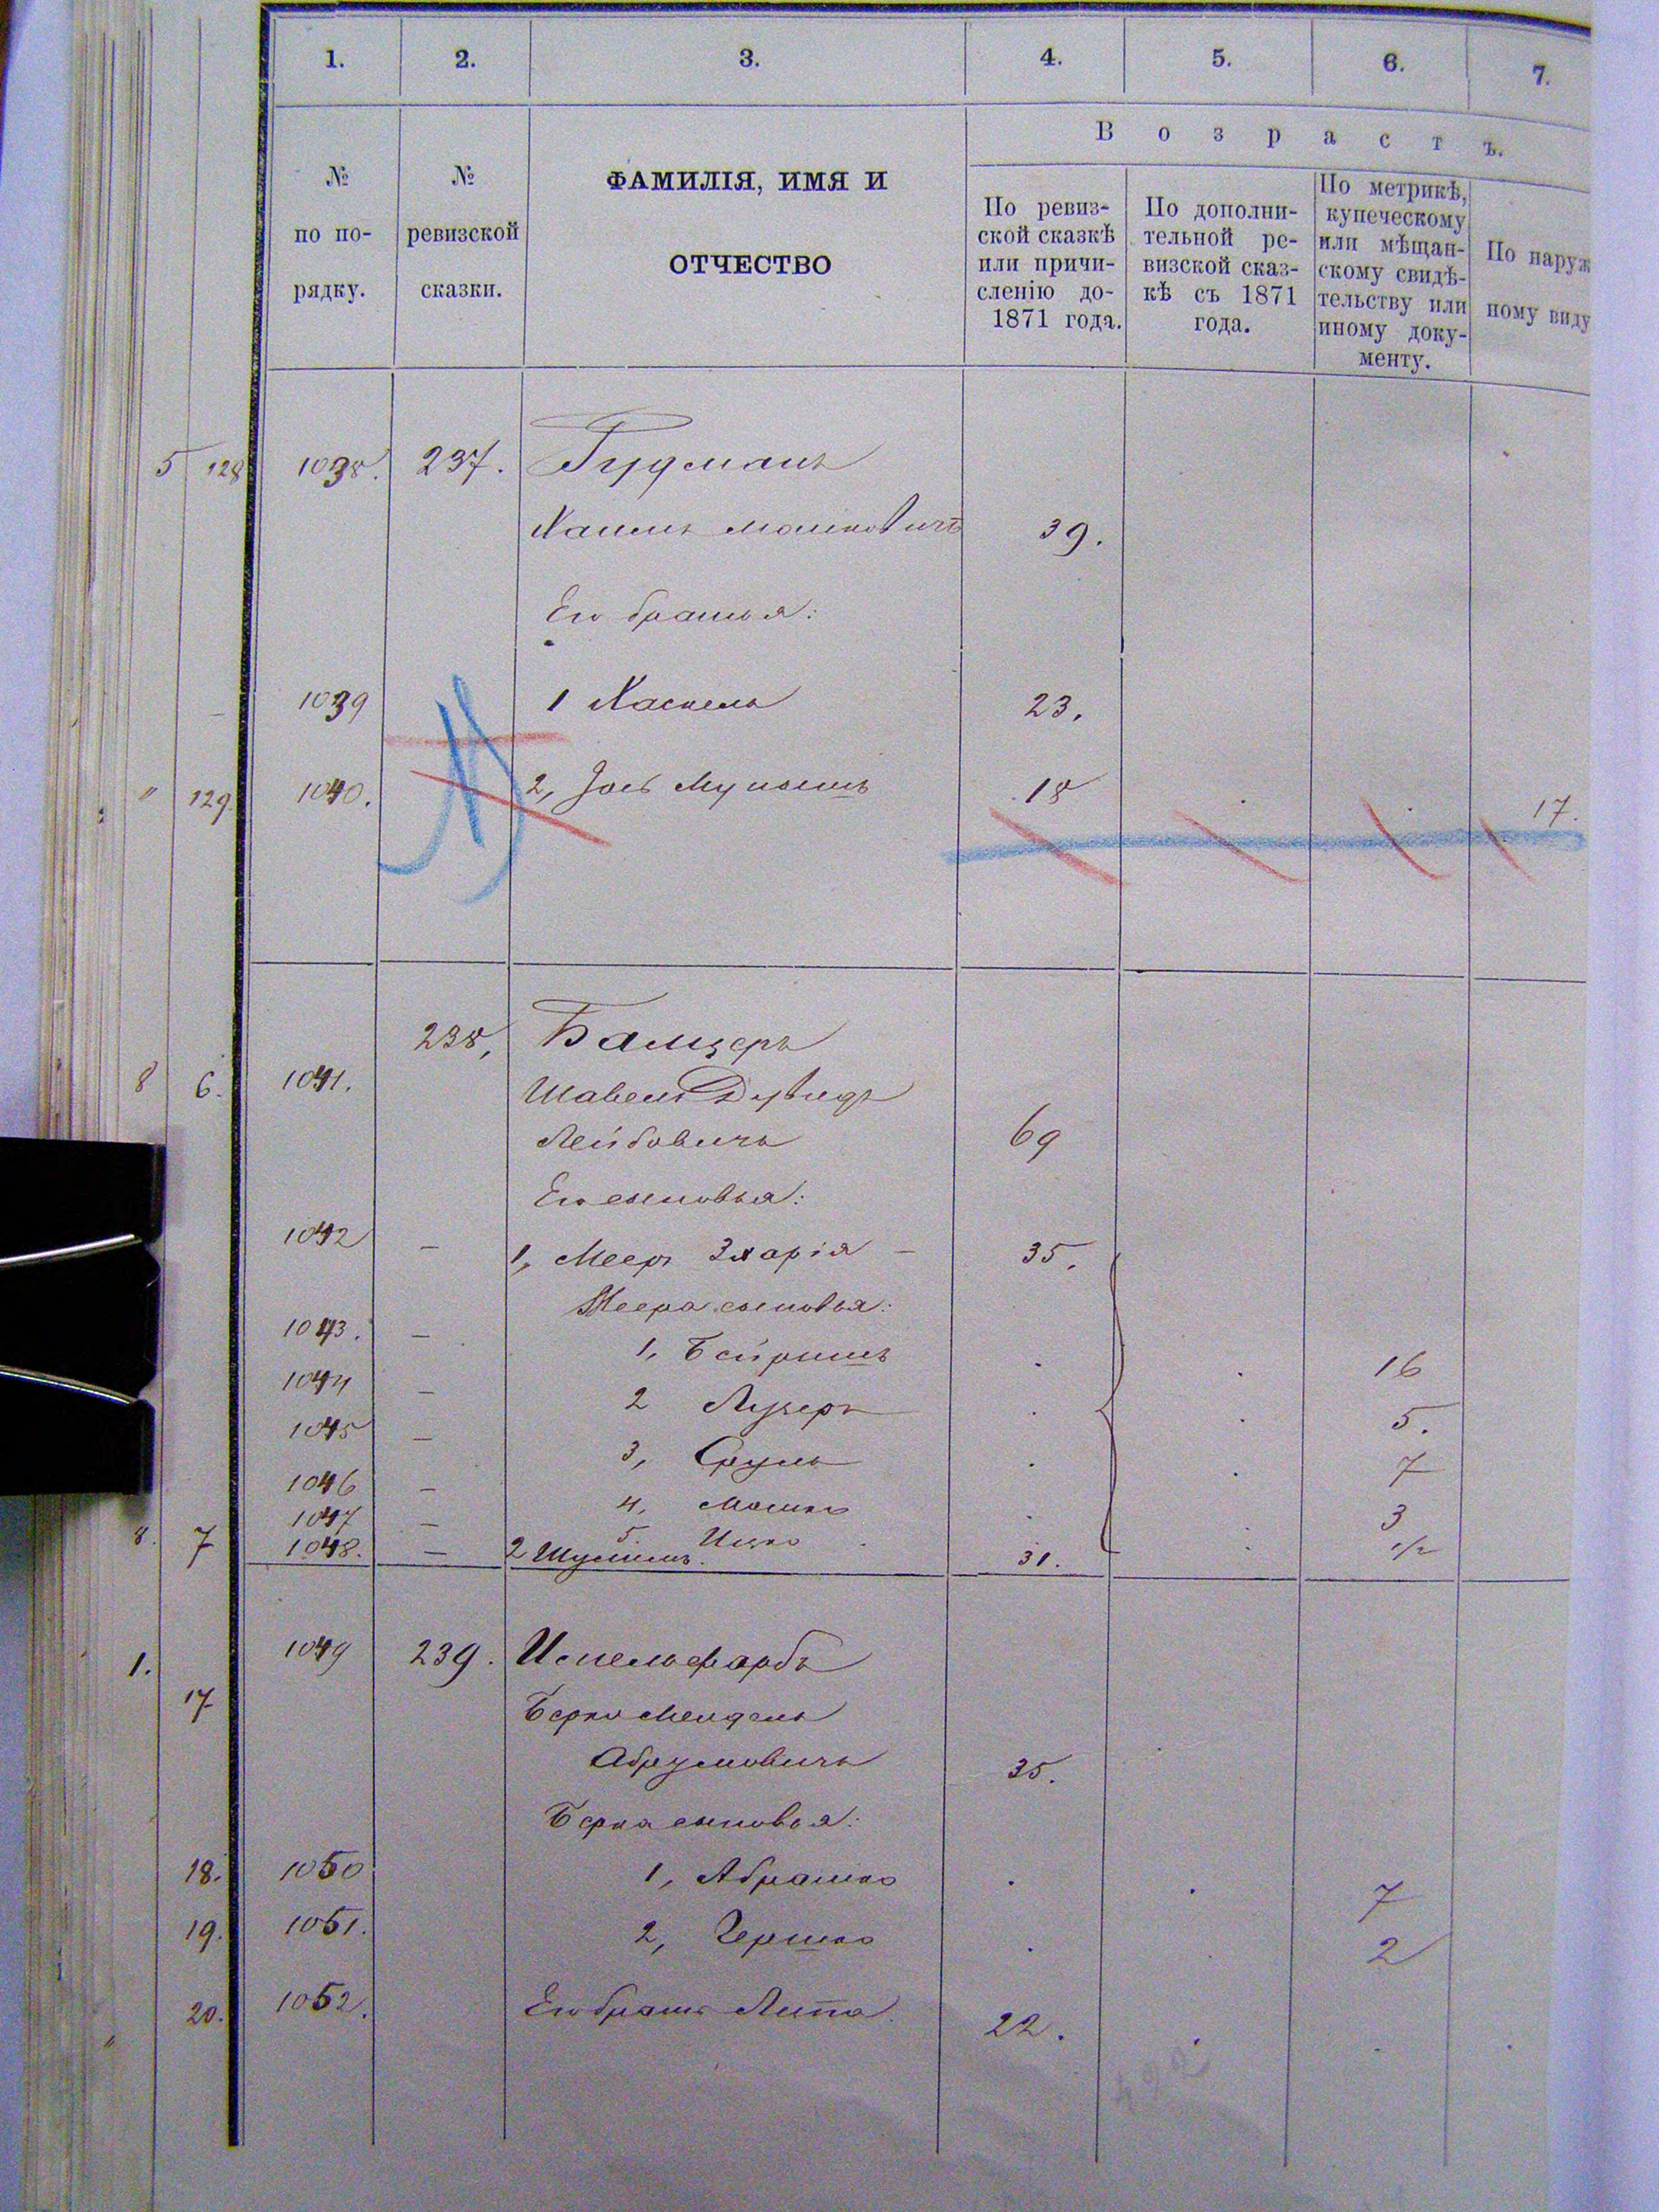 1. 2. 3. 4. 5. 6. 7.
Возрастъ.
№ по по- рядку.
№ ревизской сказки.
ФАМИЛІЯ, ИМЯ И
ОТЧЕСТВО
По ревиз-
ской сказкѣ
или причи-
сленію до-
1871 года.
По дополни-
тельной ре-
визской сказ-
кѣ съ 1871
года.
По метрикѣ,
купеческому
или мѣщан-
скому свидѣ-
тельству или
иному доку-
менту.
По наруж
ному виду
5 128 1038. 237. Гудманъ
Хаимъ Мошковичъ 39.
Его братья:
1039 1 Хаскель 23.
" 129 1040. 2, 18 17.
238, Балцеръ
8 6. 1041. Дувидъ
Лейбовичъ 69
Его сыновья:
1042 — 1, Мееръ Зхарія — 35.
Меера сыновья:
1043. — 1, Бейришъ 16
1044 — 2 Лузеръ 5.
1045 — 3, Сруль 7
1046 — 4, Мошко 3
1047 — 5. Ицко 1/2
8. 7 1048. — 2 31.
1. 1049 239.
17 Берко Мендель
Абрумовичъ 35.
Берка сыновья:
18. 1050 1, Абрашко 7
19. 1051. 2, Гершко 2
" 20. 1052. Его братъ Липа 22.